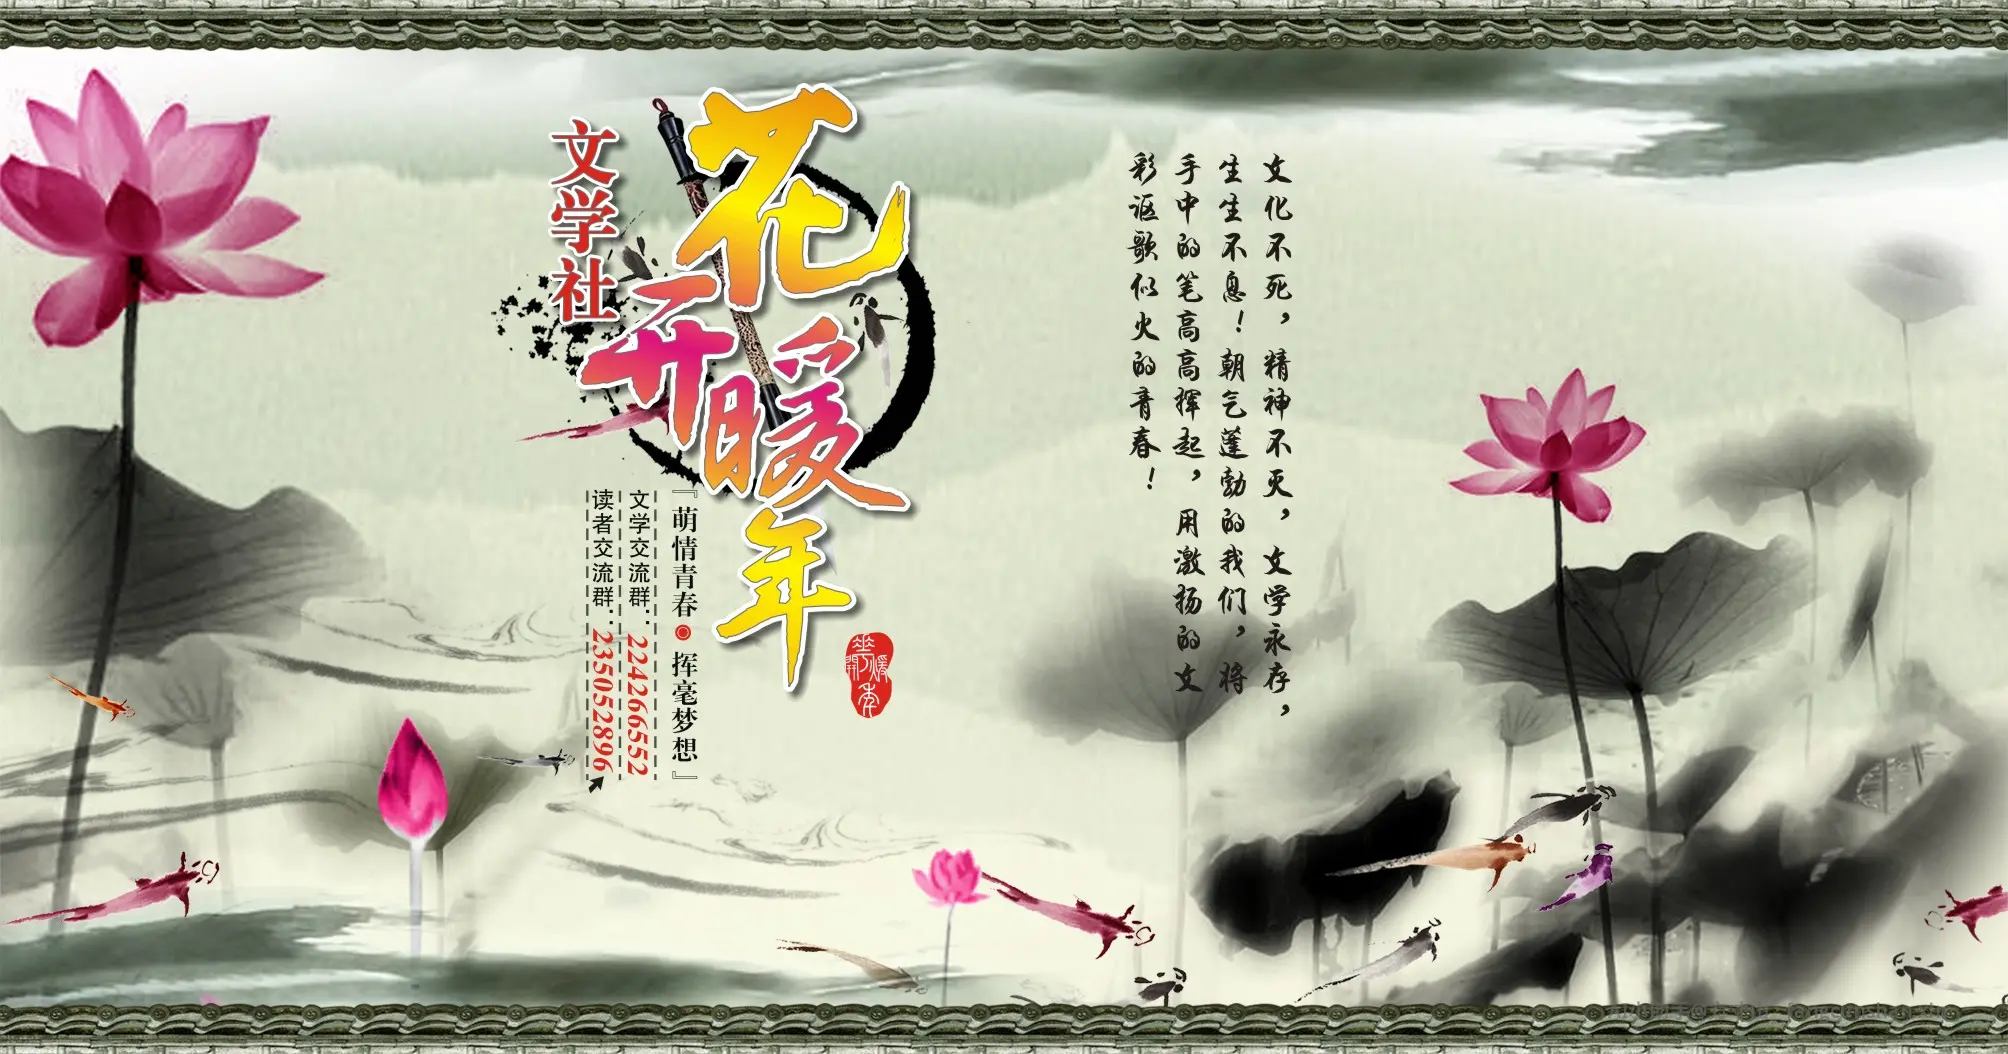 文化不死，精神不灭，文学永存，
生生不息！朝气蓬勃的我们，将
手中的笔高高挥起，用激扬的文
彩讴歌似火的青春！
花开暖年
文学社
『萌情青春◉挥毫梦想』
文学交流群：224266552
读者交流群：235052896